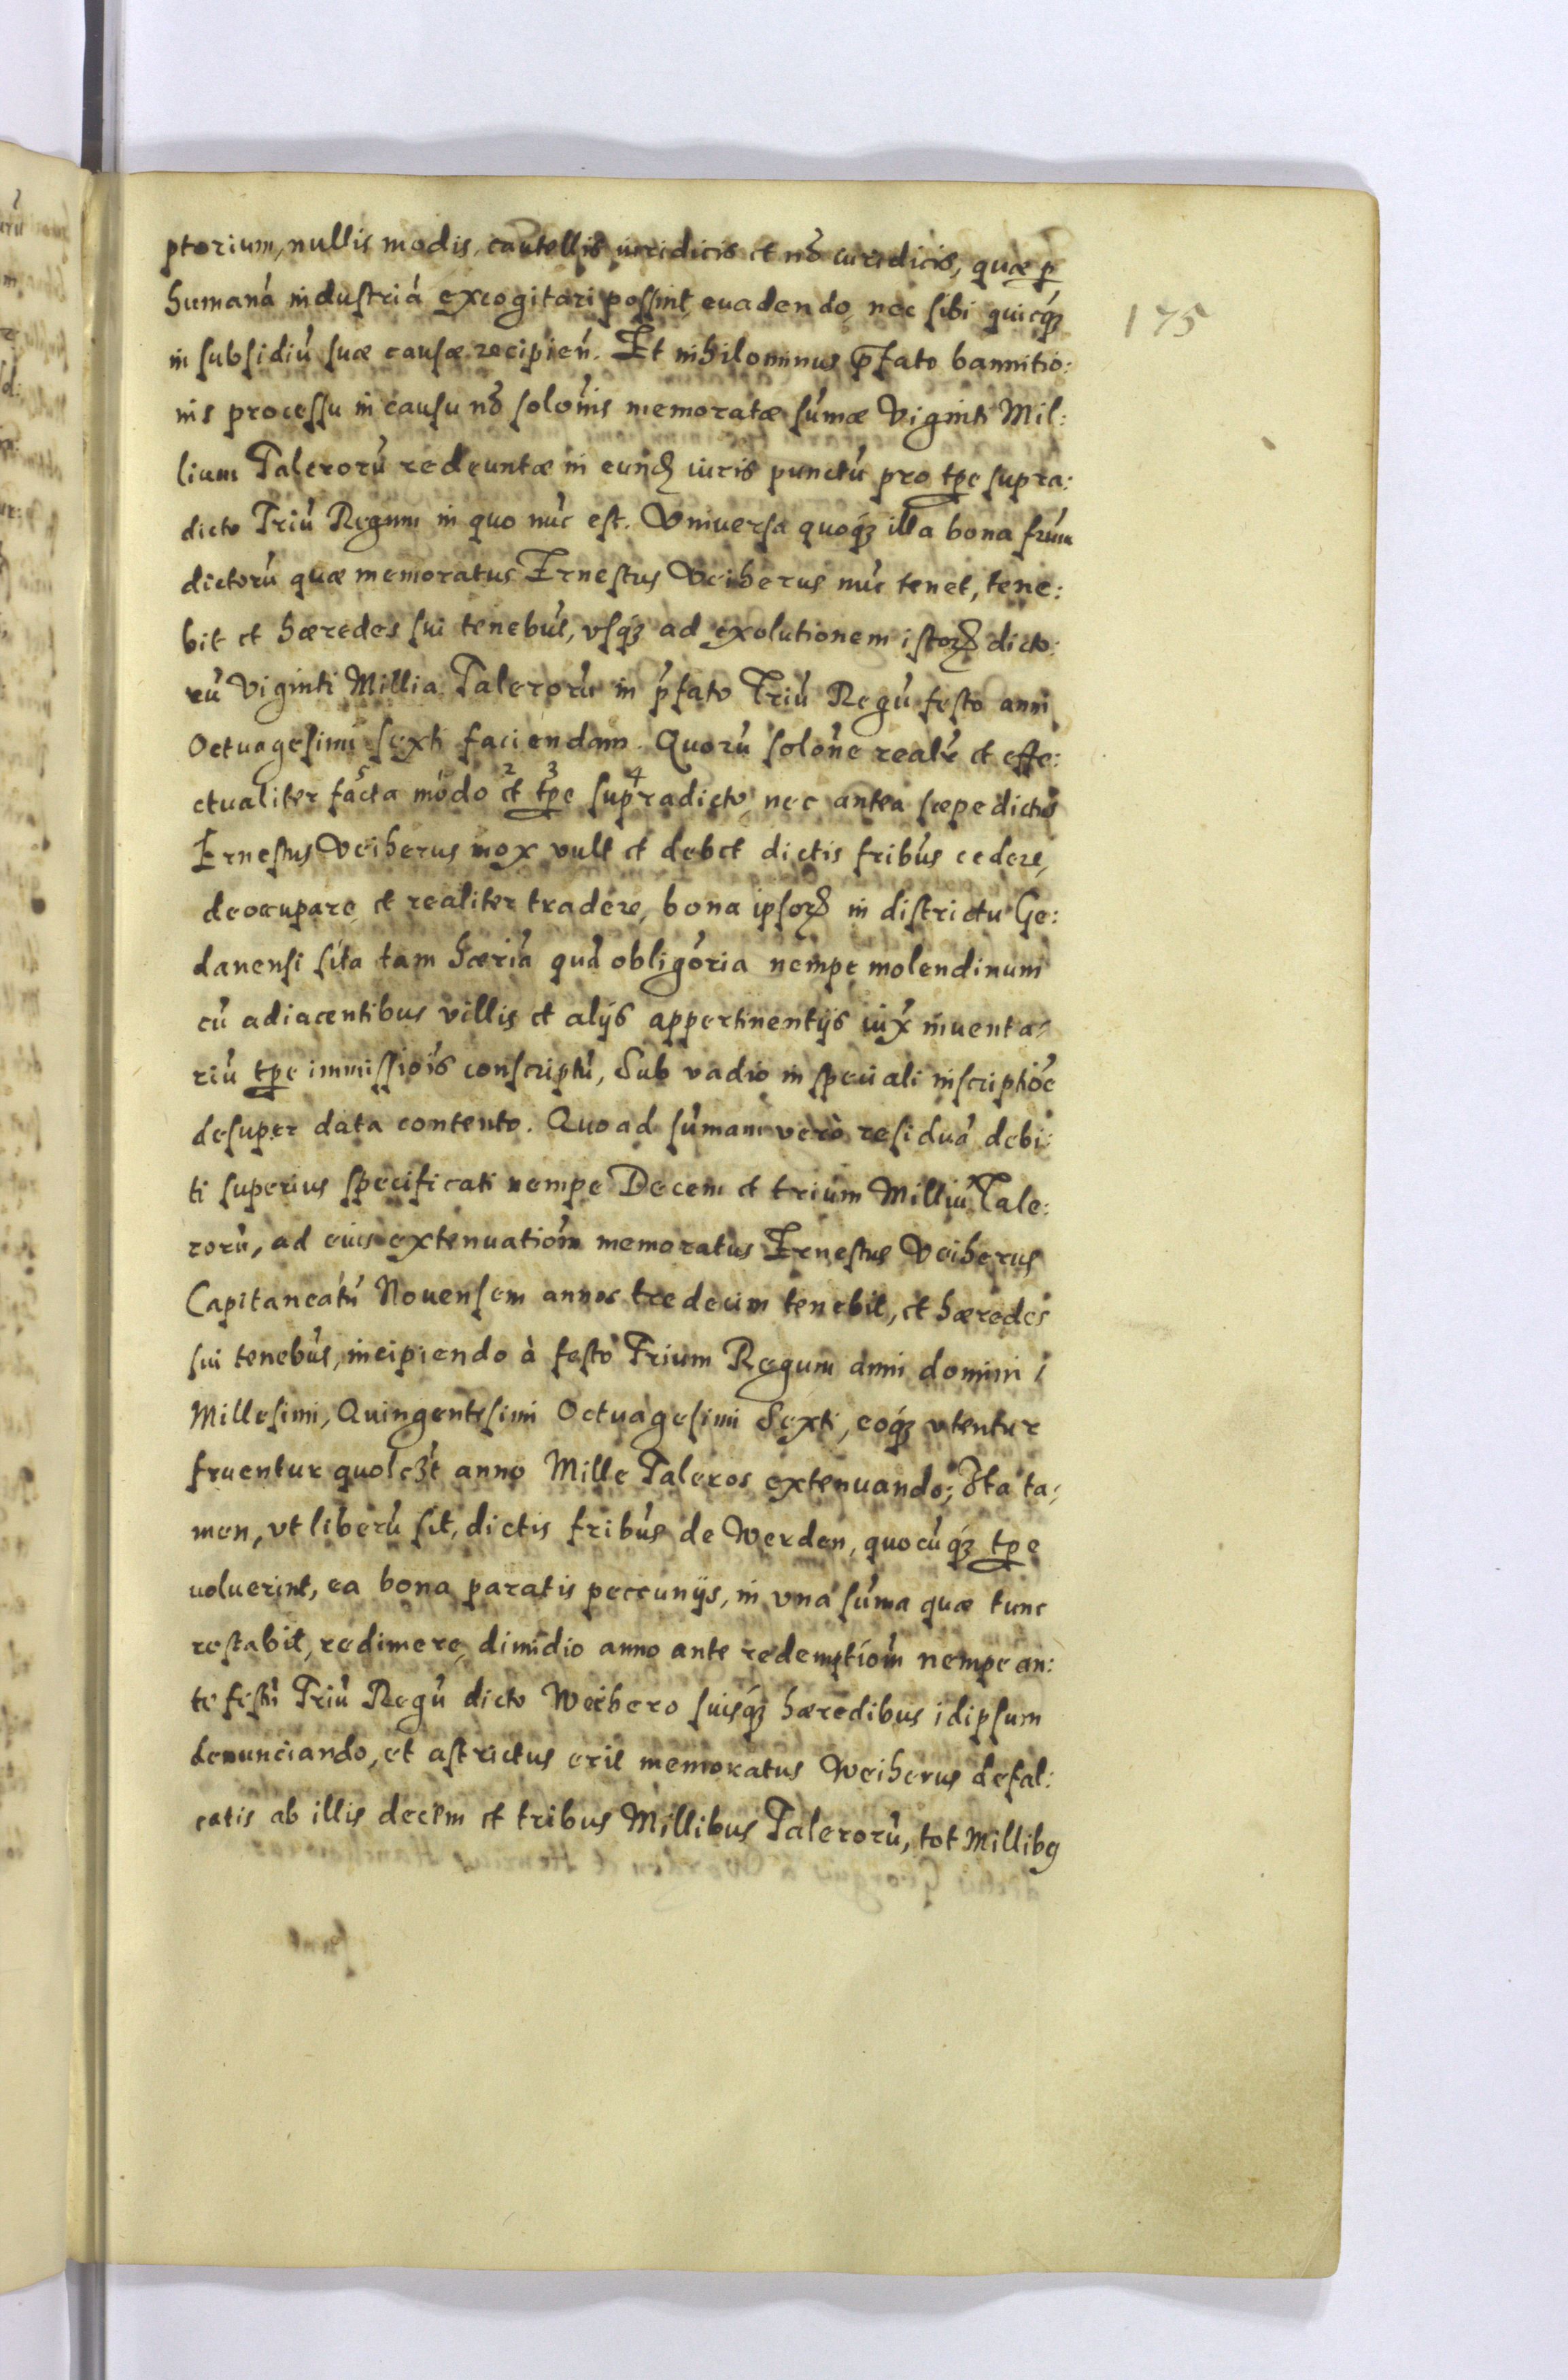 ptorium, nullis modis, cautellis iuridicis et nō iuridicis, quæ ꝑ
humaná industriá excogitari possint euadendo, nec sibi quicq́ꝫ
in subsidiú suæ causæ recipień. Et nihilominus p̄fato bannitio:
nis processu in causu nō solońis memoratæ súmæ Viginti Mil:
lium Talerorú redeuntæ in eund iuris punctú pro tp̱e supra:
dicto Triú Regum in quo núc est. Vniuersa quoq́ꝫ illa bona frúm
dictorú quæ memoratus Ernestus Veiherus núc tenet, tene:
bit et hæredes sui tenebút, vsq́ꝫ ad exolutionem istoꝝ dicto:
rú Viginti Millia Talerorú in ṕfato Triú Regú festo anni
Octuagesimi sexti faciendam. Quorú solońe realr̃ et effe:
ctualiter facta modo et tp̱e supradicto, nec antea sæpedictus
5 2 3 4
Ernestus Veiherus mox vult et debet dictis fribús cedere,
deoccupare, et realiter tradere, bona ipsoꝝ in districtu Ge:
danensi sita tam hæriá quá obligória nempe molendinum
cú adiacentibus villis et alijs appertinentijs iux́ inuenta:
riú tp̱e immissiońis conscriptú, Sub vadio in speciali inscriptióe
desuper data contento. Quoad súmam verò residuá debi:
ti superius specificati nempe Decem et trium Milliú Tale:
rorú, ad eius extenuatióm memoratus Ernestus Veiherus
Capitaneátú Nouensem annos tredecim tenebit, et hæredes
sui tenebút, incipiendo à festo Trium Regum anni domini
Millesimi, Quingentesimi Octuagesimi Sexti, eoq́ꝫ vtentur
fruentur quolꝫt anno Mille Taleros extenuando; Ita ta:
men, vt liberú sit, dictis fribús de Werden, quocúq́ꝫ tp̱e
uoluerint, ea bona paratis peccunijs, in vná súma quæ tunc
restabit, redimere, dimidio anno ante redemptióm nempe an:
te festú Triú Regú dicto Weihero suisq́ꝫ hæredibus idipsum
denunciando, et astrictus erit memoratus Weiherus defal:
catis ab illis decem et tribus Millibus Talerorú, tot Millibꝯ
175